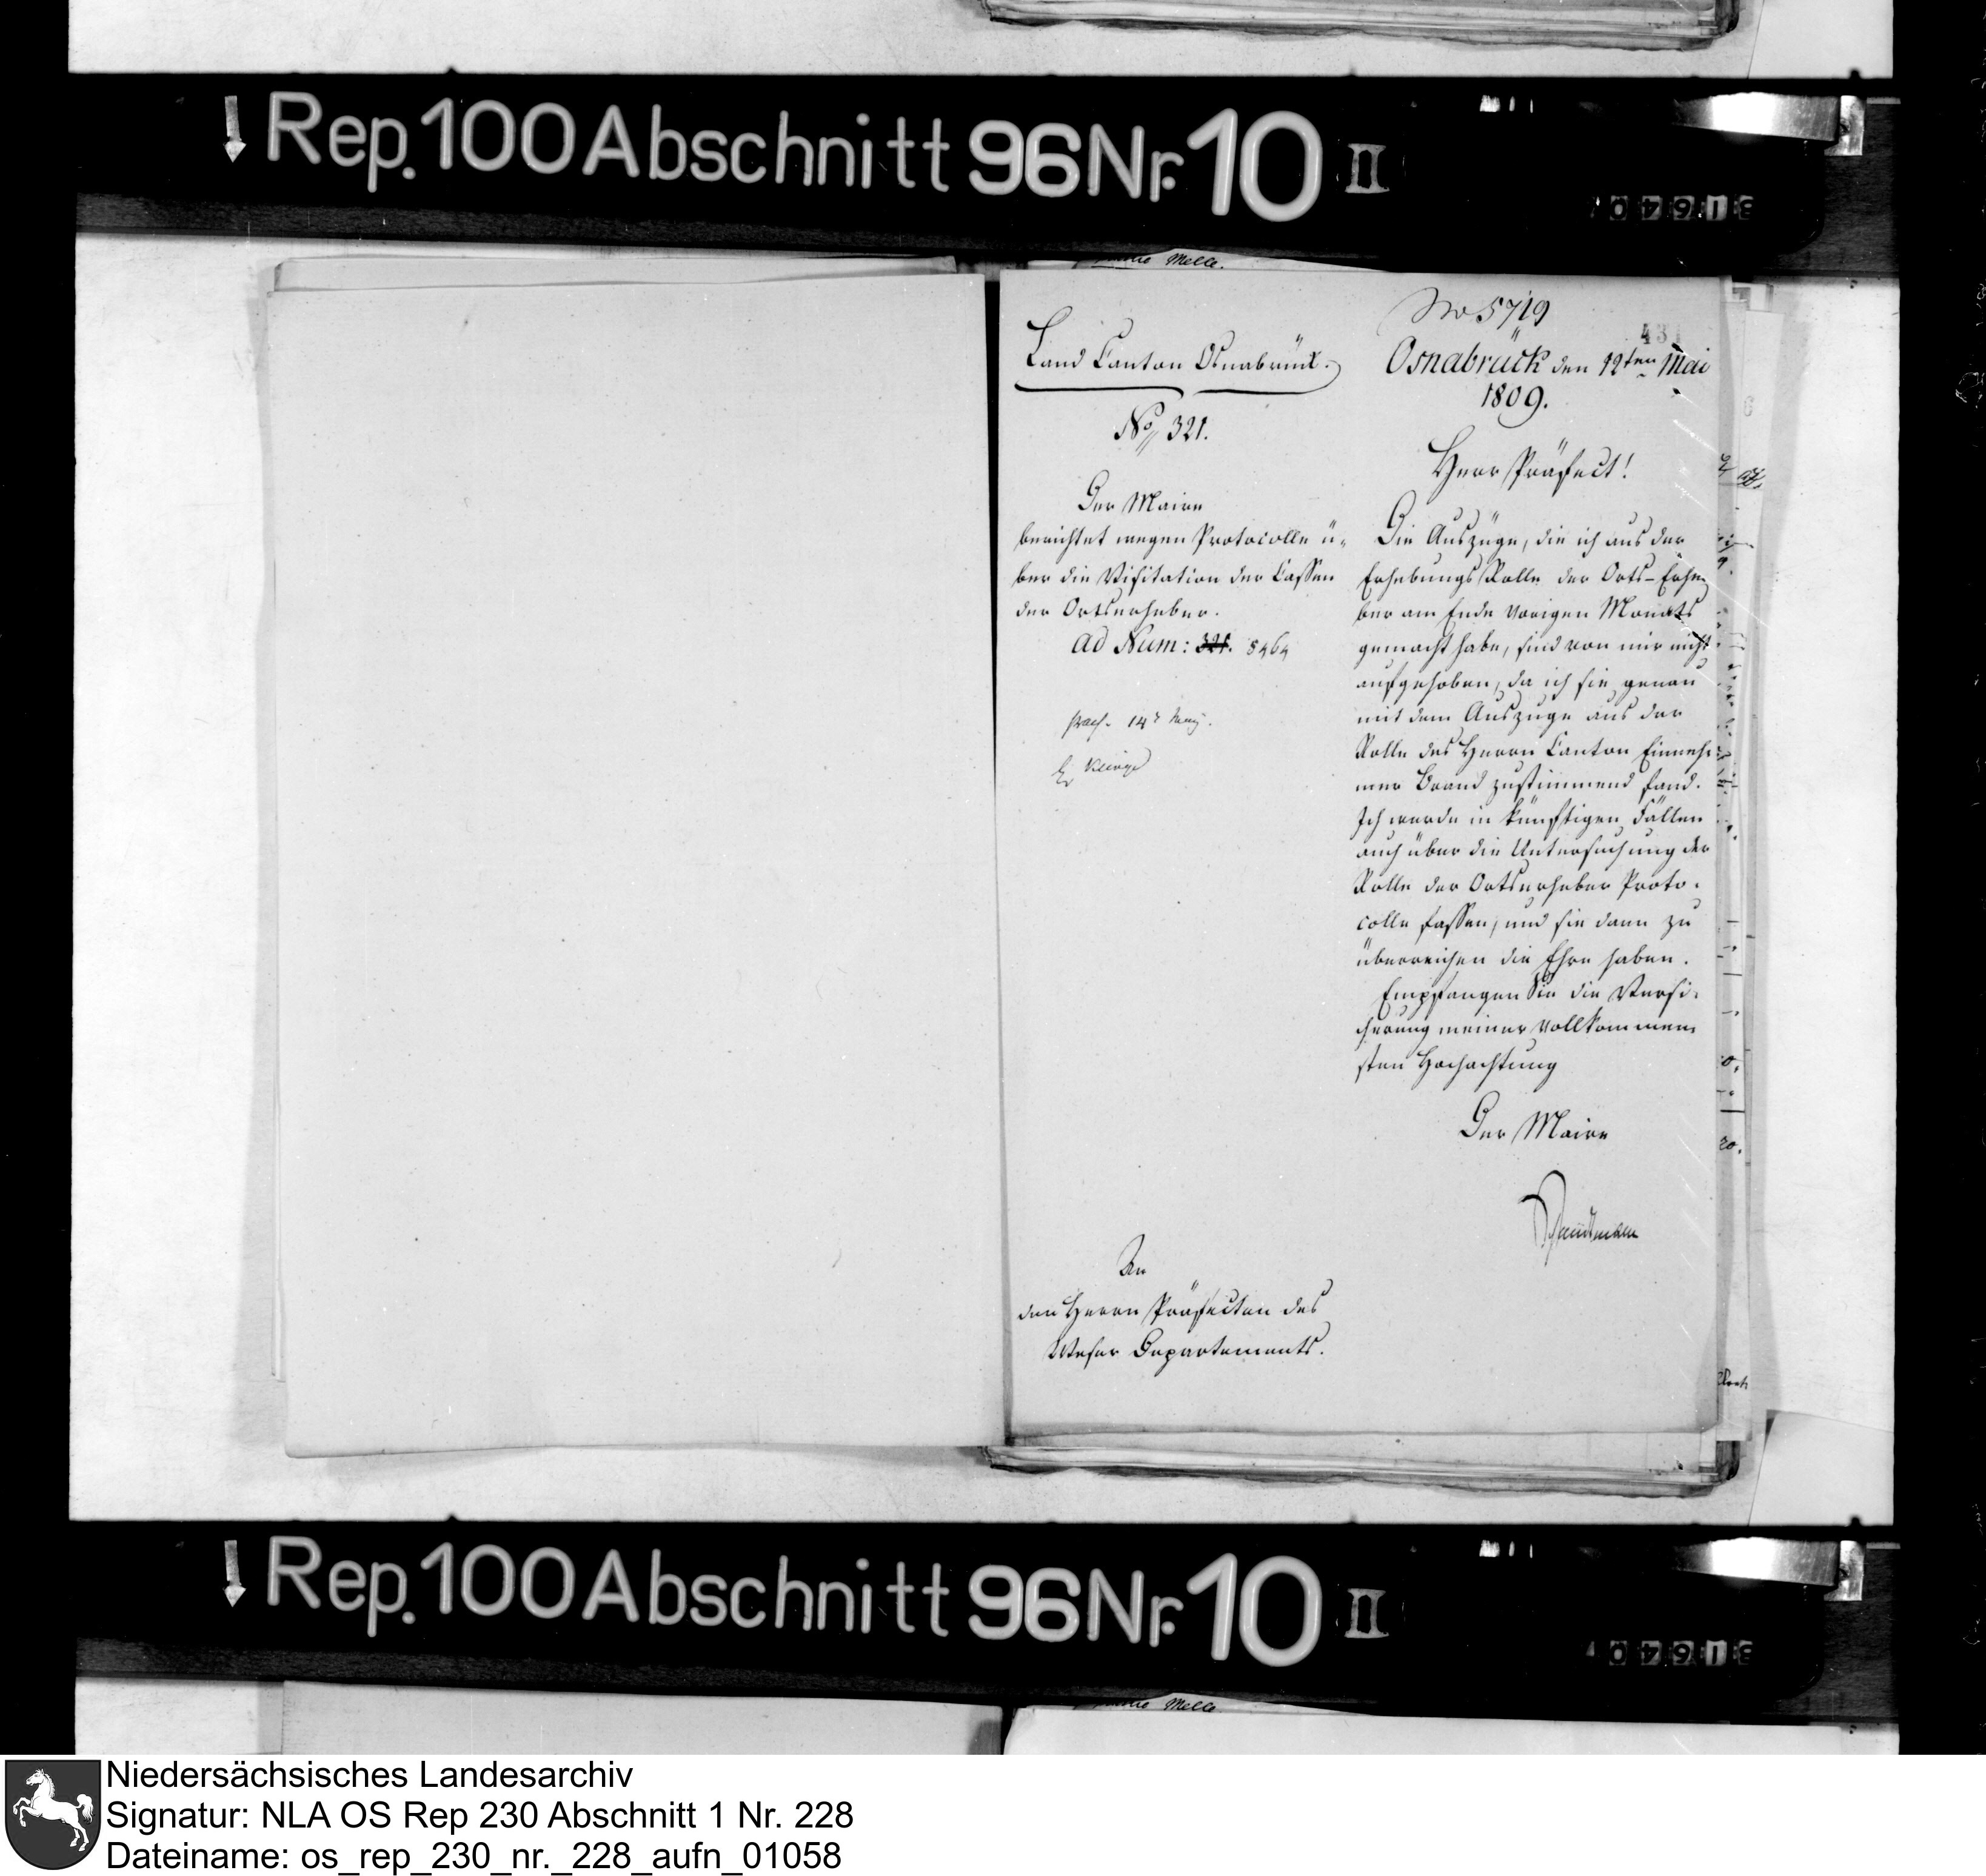 Rep. 100 Abschnitt 96 Nr. 10 II
Melle.
No 5719
431
Land Canton Osnabrück.
No 321.
Der Maire
berichtet wegen Protocolle ü-
ber die Visitation der Cassen
der Ortserheber.
ad Num: 321. 5464
praes. 14t May.
Osnabrück den 12ten Mai
1809.
Herr Präfect!
Die Auszüge, die ich aus der
Erhebungs Rolle der Orts-Erhe-
ber am Ende vorigen Monats
gemacht habe, sind von mir nicht
aufgehoben, da ich sie genau
mit dem Auszuge aus der
Rolle des Herrn Canton Einneh-
mer Brand zustimmend fand.
Ich werde in künftigen Fällen
auch über die Untersuchung der
Rolle der Ortserheber Proto-
colle fassen, und sie dann zu
überreichen die Ehre haben.
Empfangen Sie die Versi-
cherung meiner vollkommen-
sten Hochachtung
Der Maire
An
den Herrn Präfecten des
Weser Departements.
Rep. 100 Abschnitt 96 Nr. 10 II
Melle
Niedersächsisches Landesarchiv
Signatur: NLA OS Rep 230 Abschnitt 1 Nr. 228
Dateiname: os_rep_230_nr._228_aufn_01058